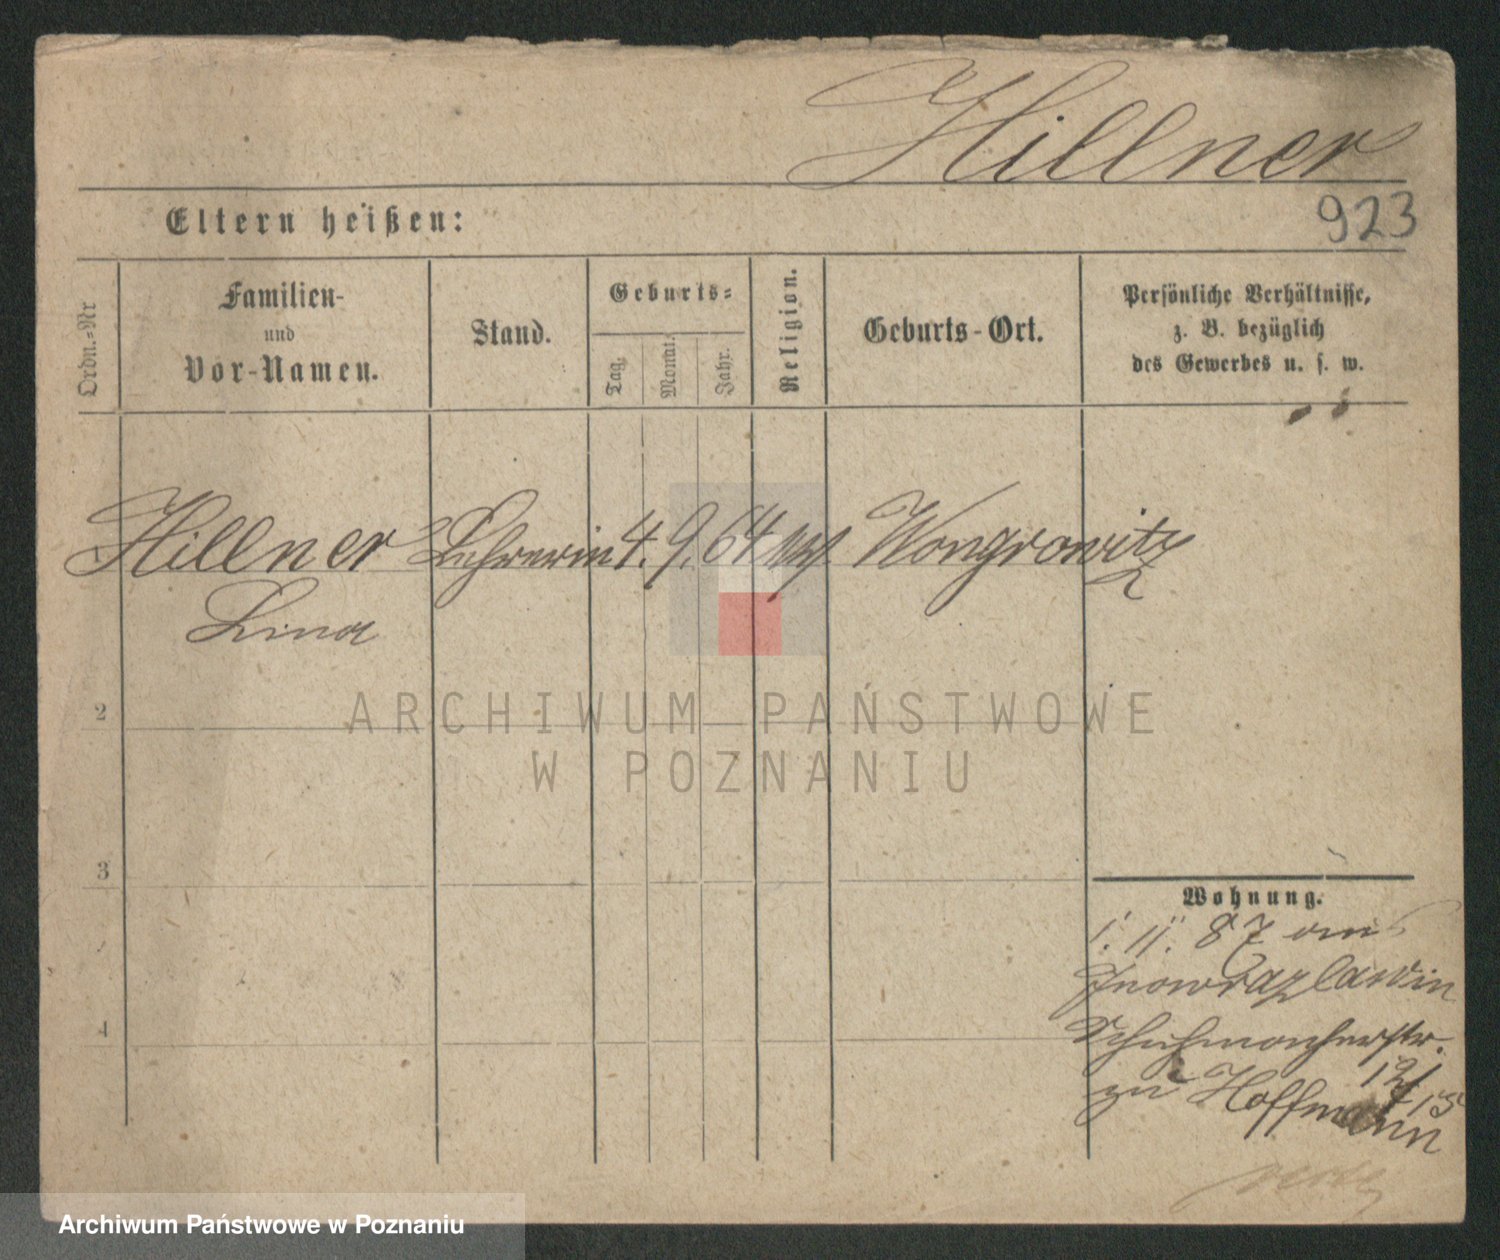 Hillner
923
Eltern heißen:
Ordn.-Nr
Familien-
und
Vor-Namen.
Stand.
Geburts-
Tag.
Monat.
Jahr.
Religion.
Geburts-Ort.
Persönliche Verhältnisse,
z. B. bezüglich
des Gewerbes u. s. w.
Hillner Lehrerin 4. 9. 64 Wongrowitz
Lina
2
3
4
Wohnung.
1. 11. 87 aus
Inowrazlaw in
Schuhmacherstr.
12/
13
zu Hoffmann
ARCHIWUM PAŃSTWOWE
W POZNANIU
Archiwum Państwowe w Poznaniu